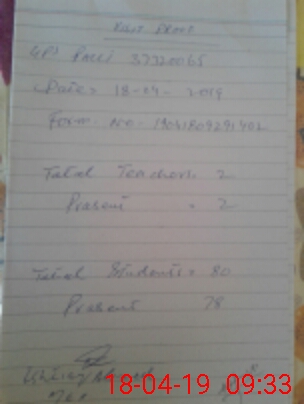 Visit Proof
GPS Palli 37320065
Date: 18-04-2019
Form. No. 19041809291402
Total Teachers = 2
Present = 2
Total Students = 80
Present 78
Ahmad
18-04-19 09:33